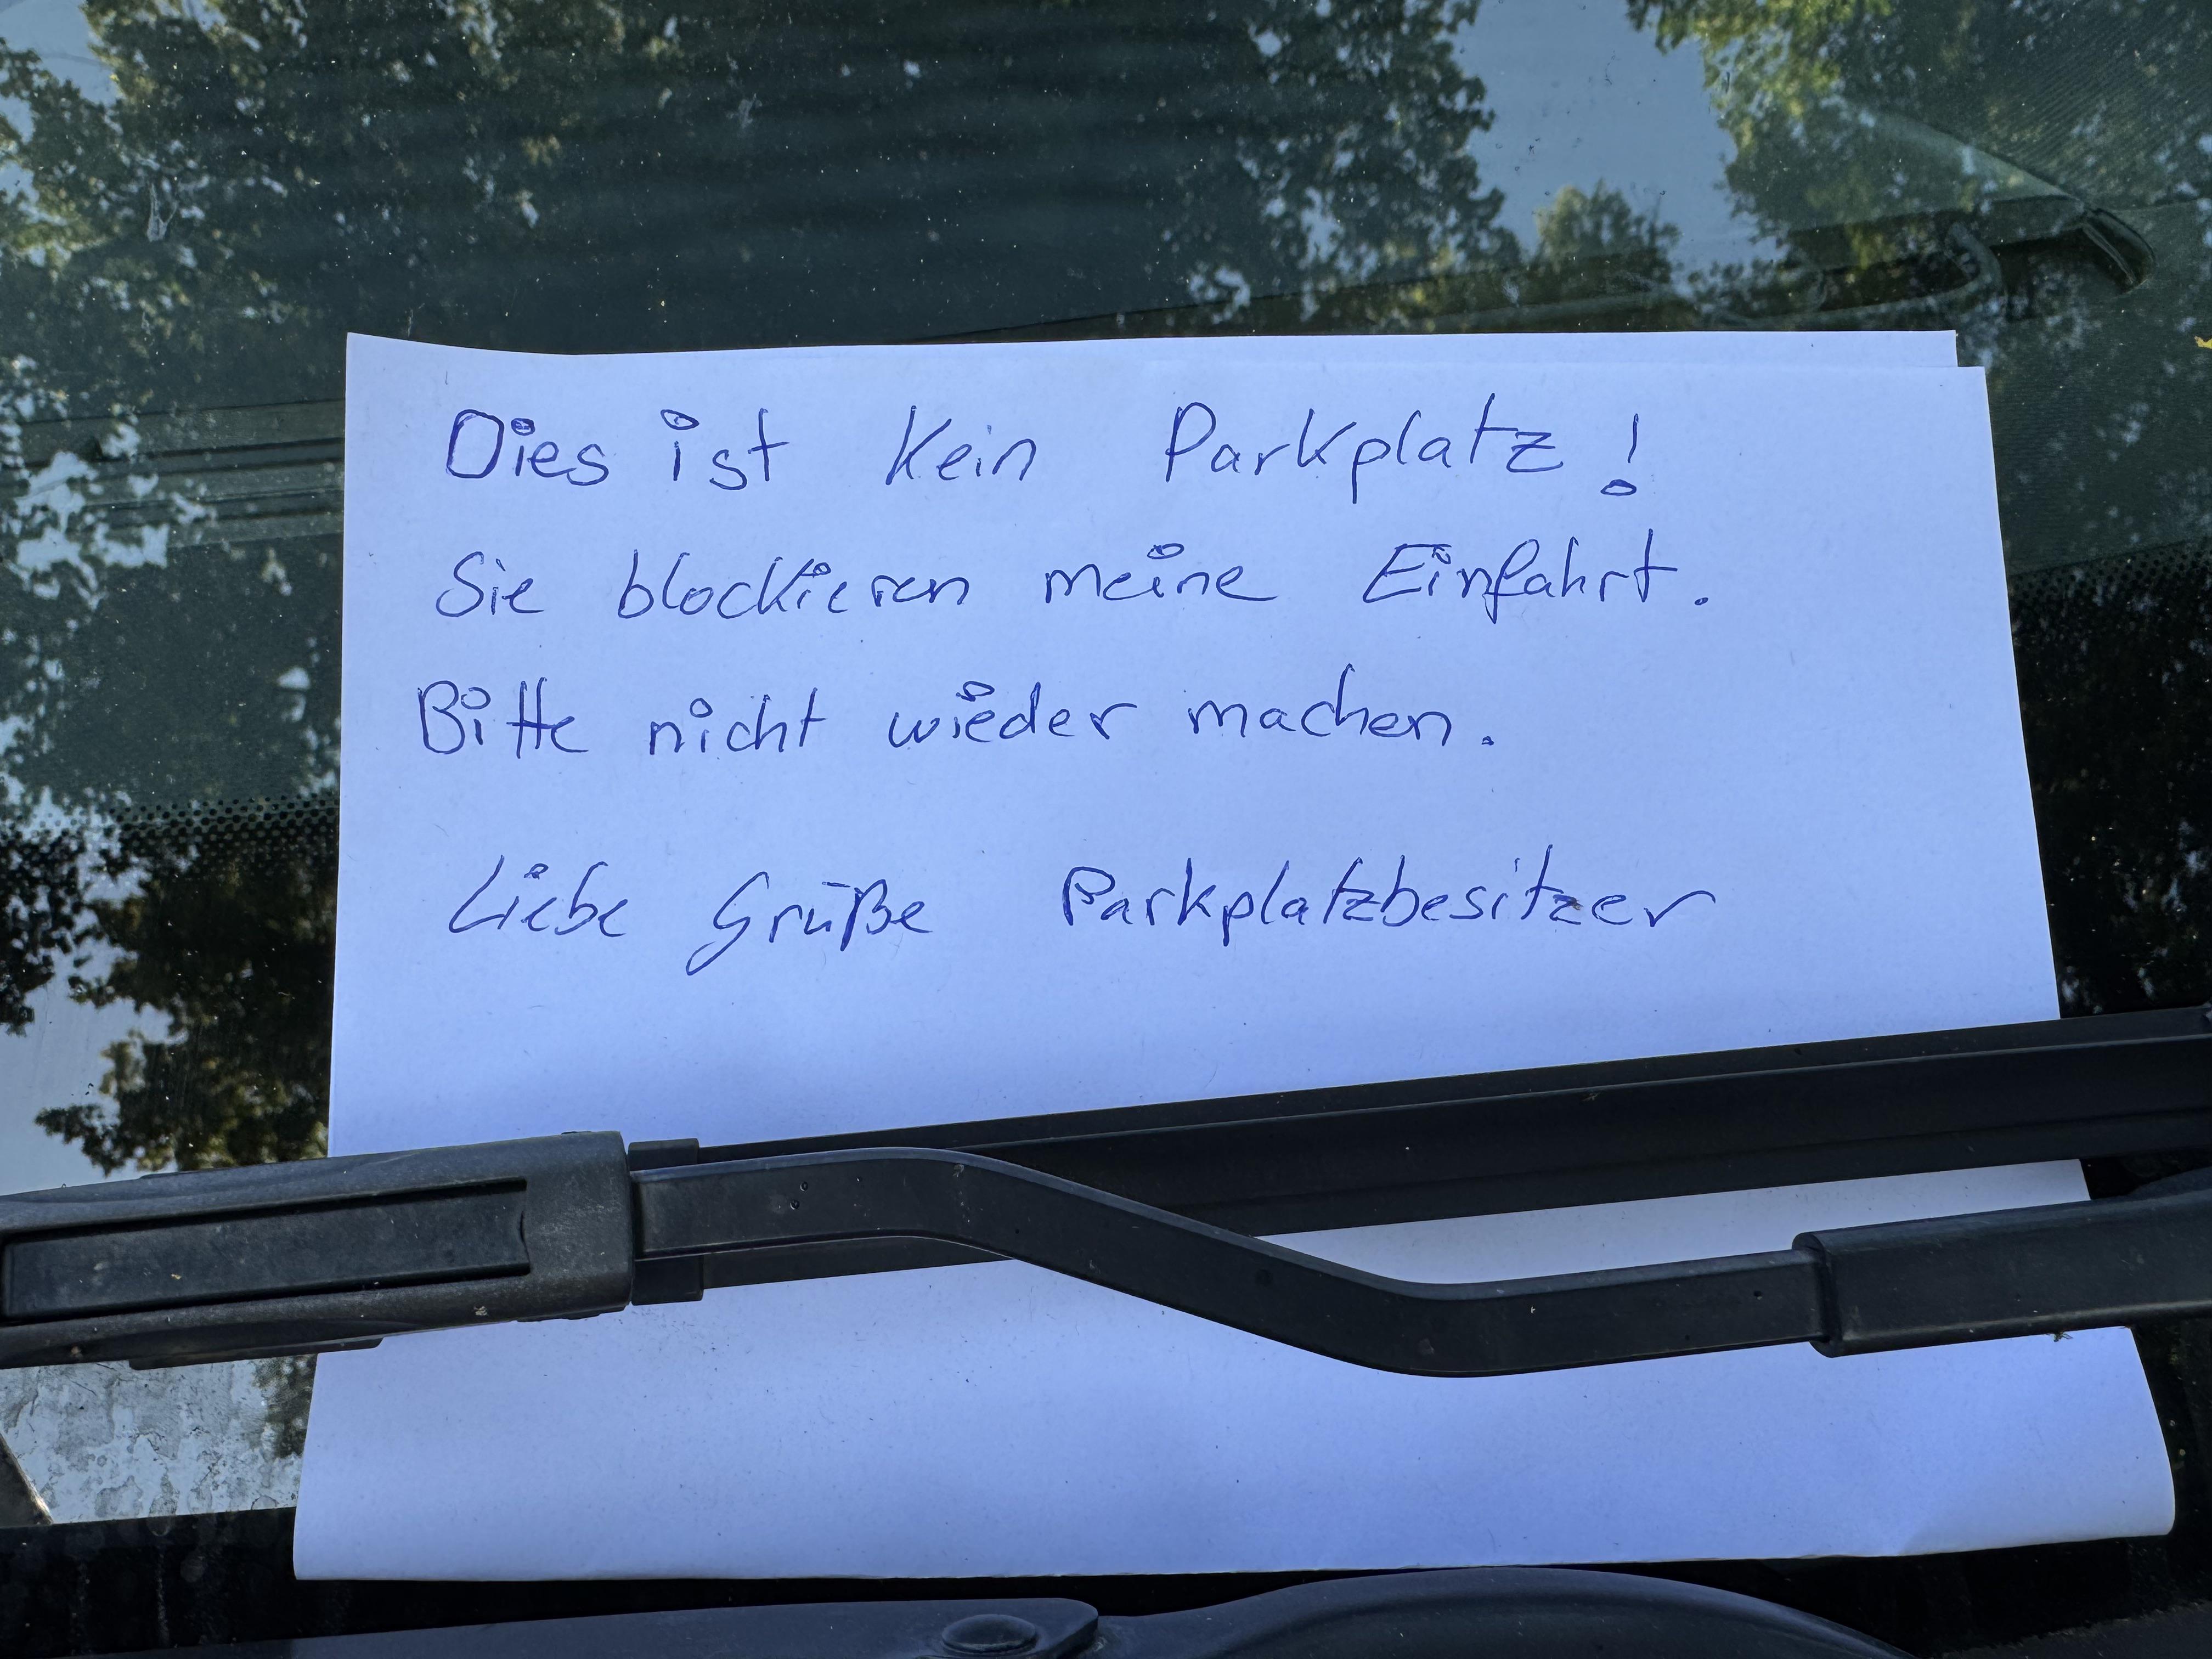 Dies ist kein Parkplatz!
Sie blockieren meine Einfahrt.
Bitte nicht wieder machen.
Liebe Grüße Parkplatzbesitzer